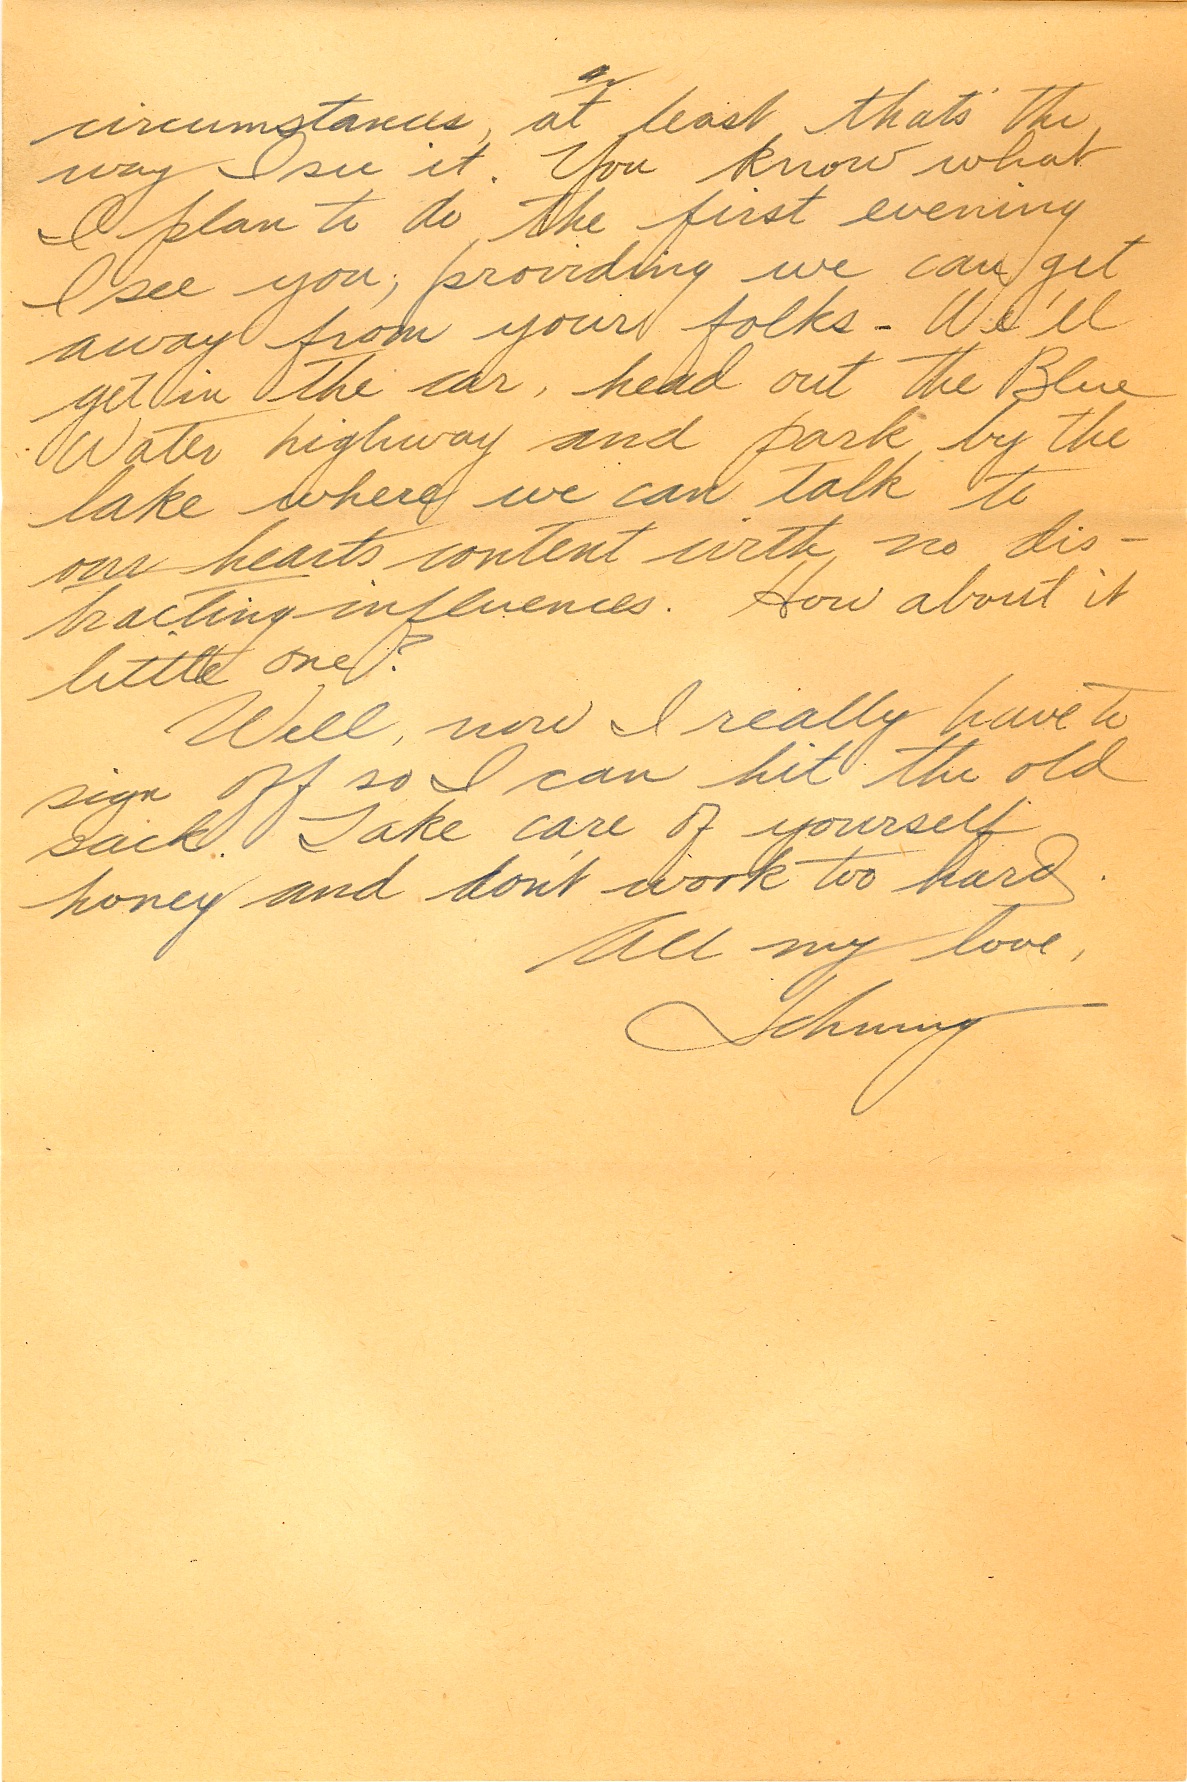 circumstances, at least that's the
way I see it. You know what
I plan to do the first evening
I see you, providing we can get
away from your folks - We'll
get in the car, head out the Blue
Water highway and park by the
lake where we can talk to
our hearts content with no dis-
tracting influences. How about it
little one?
Well, now I really have to
sign off so I can hit the old
sack. Take care of yourself
honey and don't work too hard.
All my love,
Johnny